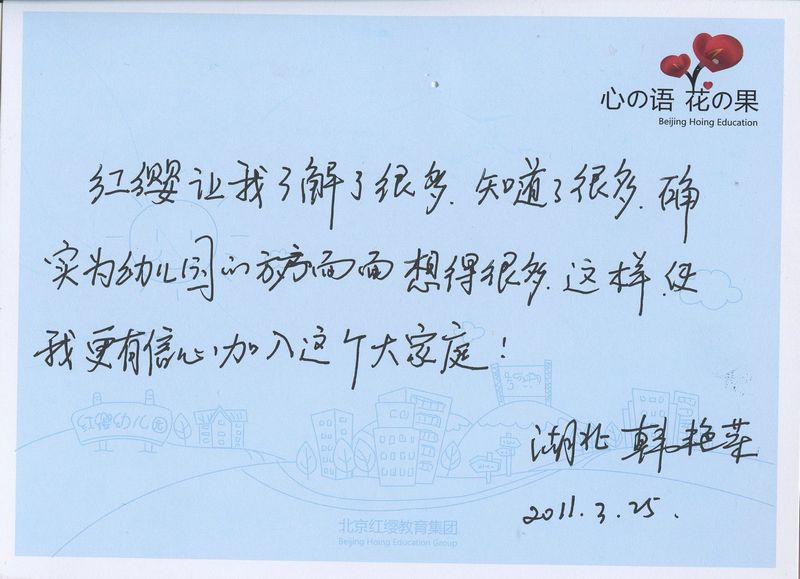 心の语 花の果
Beijing Hoing Education
红缨让我了解了很多.知道了很多.确
实为幼儿园的方方面面想得很多.这样.使
我更有信心加入这个大家庭!
红缨幼儿园
湖北 韩艳菜
2011.3.25.
北京红缨教育集团
Beijing Hoing Education Group